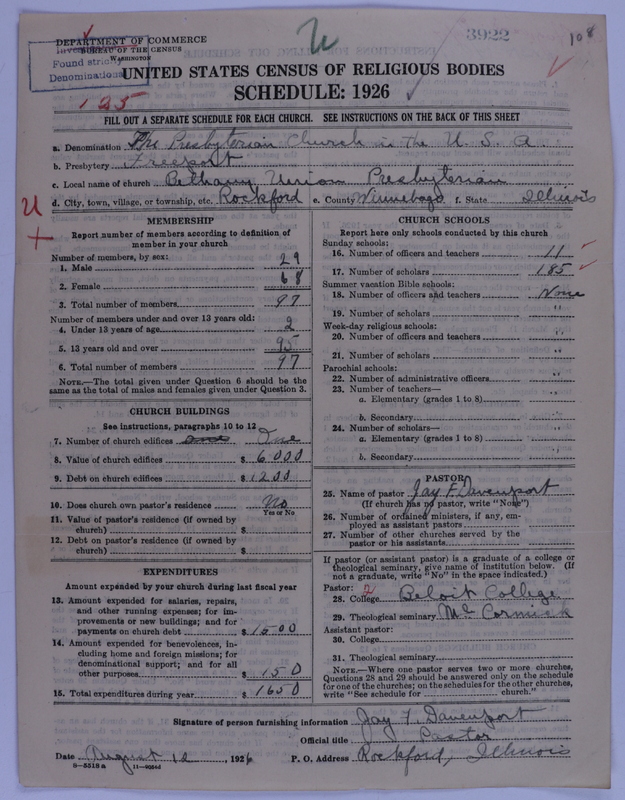 3922
108
DEPARTMENT OF COMMERCE
BUREAU OF THE CENSUS
WASHINGTON
Found strictly
Denominational
UNITED STATES CENSUS OF RELIGIOUS BODIES
SCHEDULE: 1926
125
FILL OUT A SEPARATE SCHEDULE FOR EACH CHURCH. SEE INSTRUCTIONS ON THE BACK OF THIS SHEET
a. Denomination The Presbyterian Church in the U. S. A.
b. Presbytery Freeport
c. Local name of church Bethany Union Presbyterian
d. City, town, village, or township, etc. Rockford e. County Winnebago f. State Illinois
MEMBERSHIP
Report number of members according to definition of
member in your church
Number of members, by sex:
1. Male 29
2. Female 68
3. Total number of members 97
Number of members under and over 13 years old:
4. Under 13 years of age 2
5. 13 years old and over 95
6. Total number of members 97
NOTE.—The total given under Question 6 should be the
same as the total of males and females given under Question 3.
CHURCH BUILDINGS
See instructions, paragraphs 10 to 12
7. Number of church edifices One
8. Value of church edifices $ 6000
9. Debt on church edifices $ 1200
10. Does church own pastor's residence No
Yes or No
11. Value of pastor's residence (if owned by
church) $
12. Debt on pastor's residence (if owned by
church) $
EXPENDITURES
Amount expended by your church during last fiscal year
13. Amount expended for salaries, repairs,
and other running expenses; for im-
provements or new buildings; and for
payments on church debt $ 1500
14. Amount expended for benevolences, in-
cluding home and foreign missions; for
denominational support; and for all
other purposes $ 150
15. Total expenditures during year $ 1650
CHURCH SCHOOLS
Report here only schools conducted by this church
Sunday schools:
16. Number of officers and teachers 11
17. Number of scholars 185
Summer vacation Bible schools:
18. Number of officers and teachers None
19. Number of scholars "
Week-day religious schools:
20. Number of officers and teachers "
21. Number of scholars "
Parochial schools:
22. Number of administrative officers "
23. Number of teachers—
a. Elementary (grades 1 to 8) "
b. Secondary "
24. Number of scholars—
a. Elementary (grades 1 to 8) "
b. Secondary "
PASTOR
25. Name of pastor Jay F. Davenport
(If church has no pastor, write "None")
26. Number of ordained ministers, if any, em-
ployed as assistant pastors
27. Number of other churches served by the
pastor or his assistants
If pastor (or assistant pastor) is a graduate of a college or
theological seminary, give name of institution below. (If
not a graduate, write "No" in the space indicated.)
Pastor: 2
28. College Beloit College
29. Theological seminary McCormick
Assistant pastor:
30. College
31. Theological seminary
NOTE.—Where one pastor serves two or more churches,
Questions 28 and 29 should be answered only on the schedule
for one of the churches; on the schedules for the other churches,
write "See schedule for church."
Signature of person furnishing information Jay F. Davenport
Official title Pastor
Date August 12, 1926 P. O. Address Rockford, Illinois
8-5518a 11-9056d